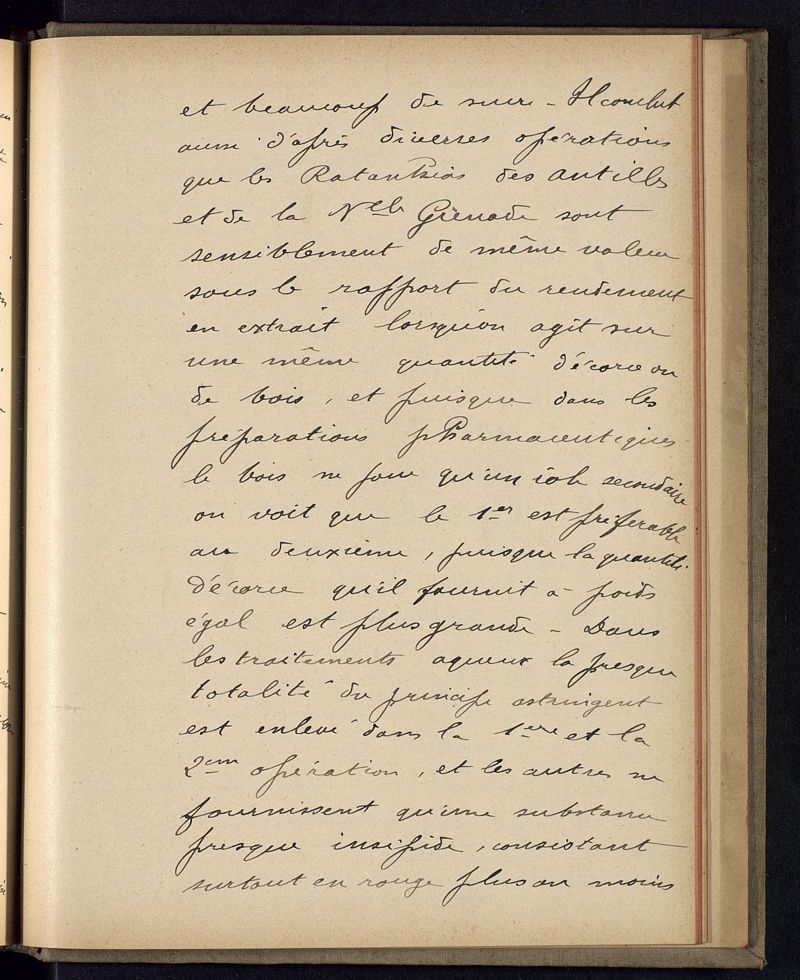 et beaucoup de sucre - Il conclut
aussi d'après diverses opérations
que les Ratanhias des antilles
et de la Nelle Grenade sont
sensiblement de même valeur
sous le rapport du rendement
en extrait lorsqu'on agit sur
une même quantité d'écorce ou
de bois, et puisque dans les
préparations pharmaceutiques
le bois ne joue qu'un role secondaire
on voit que le 1er est préférable
au deuxième, puisque la quantité
d'écorce qu'il fournit à poids
égal est plus grande - Dans
les traitements aqueux la presque
totalité du principe astringent
est enlevé dans la 1ere et la
2em opération, et les autres ne
fournissent qu'une substance
presque insipide, consistant
surtout en rouge plus ou moins